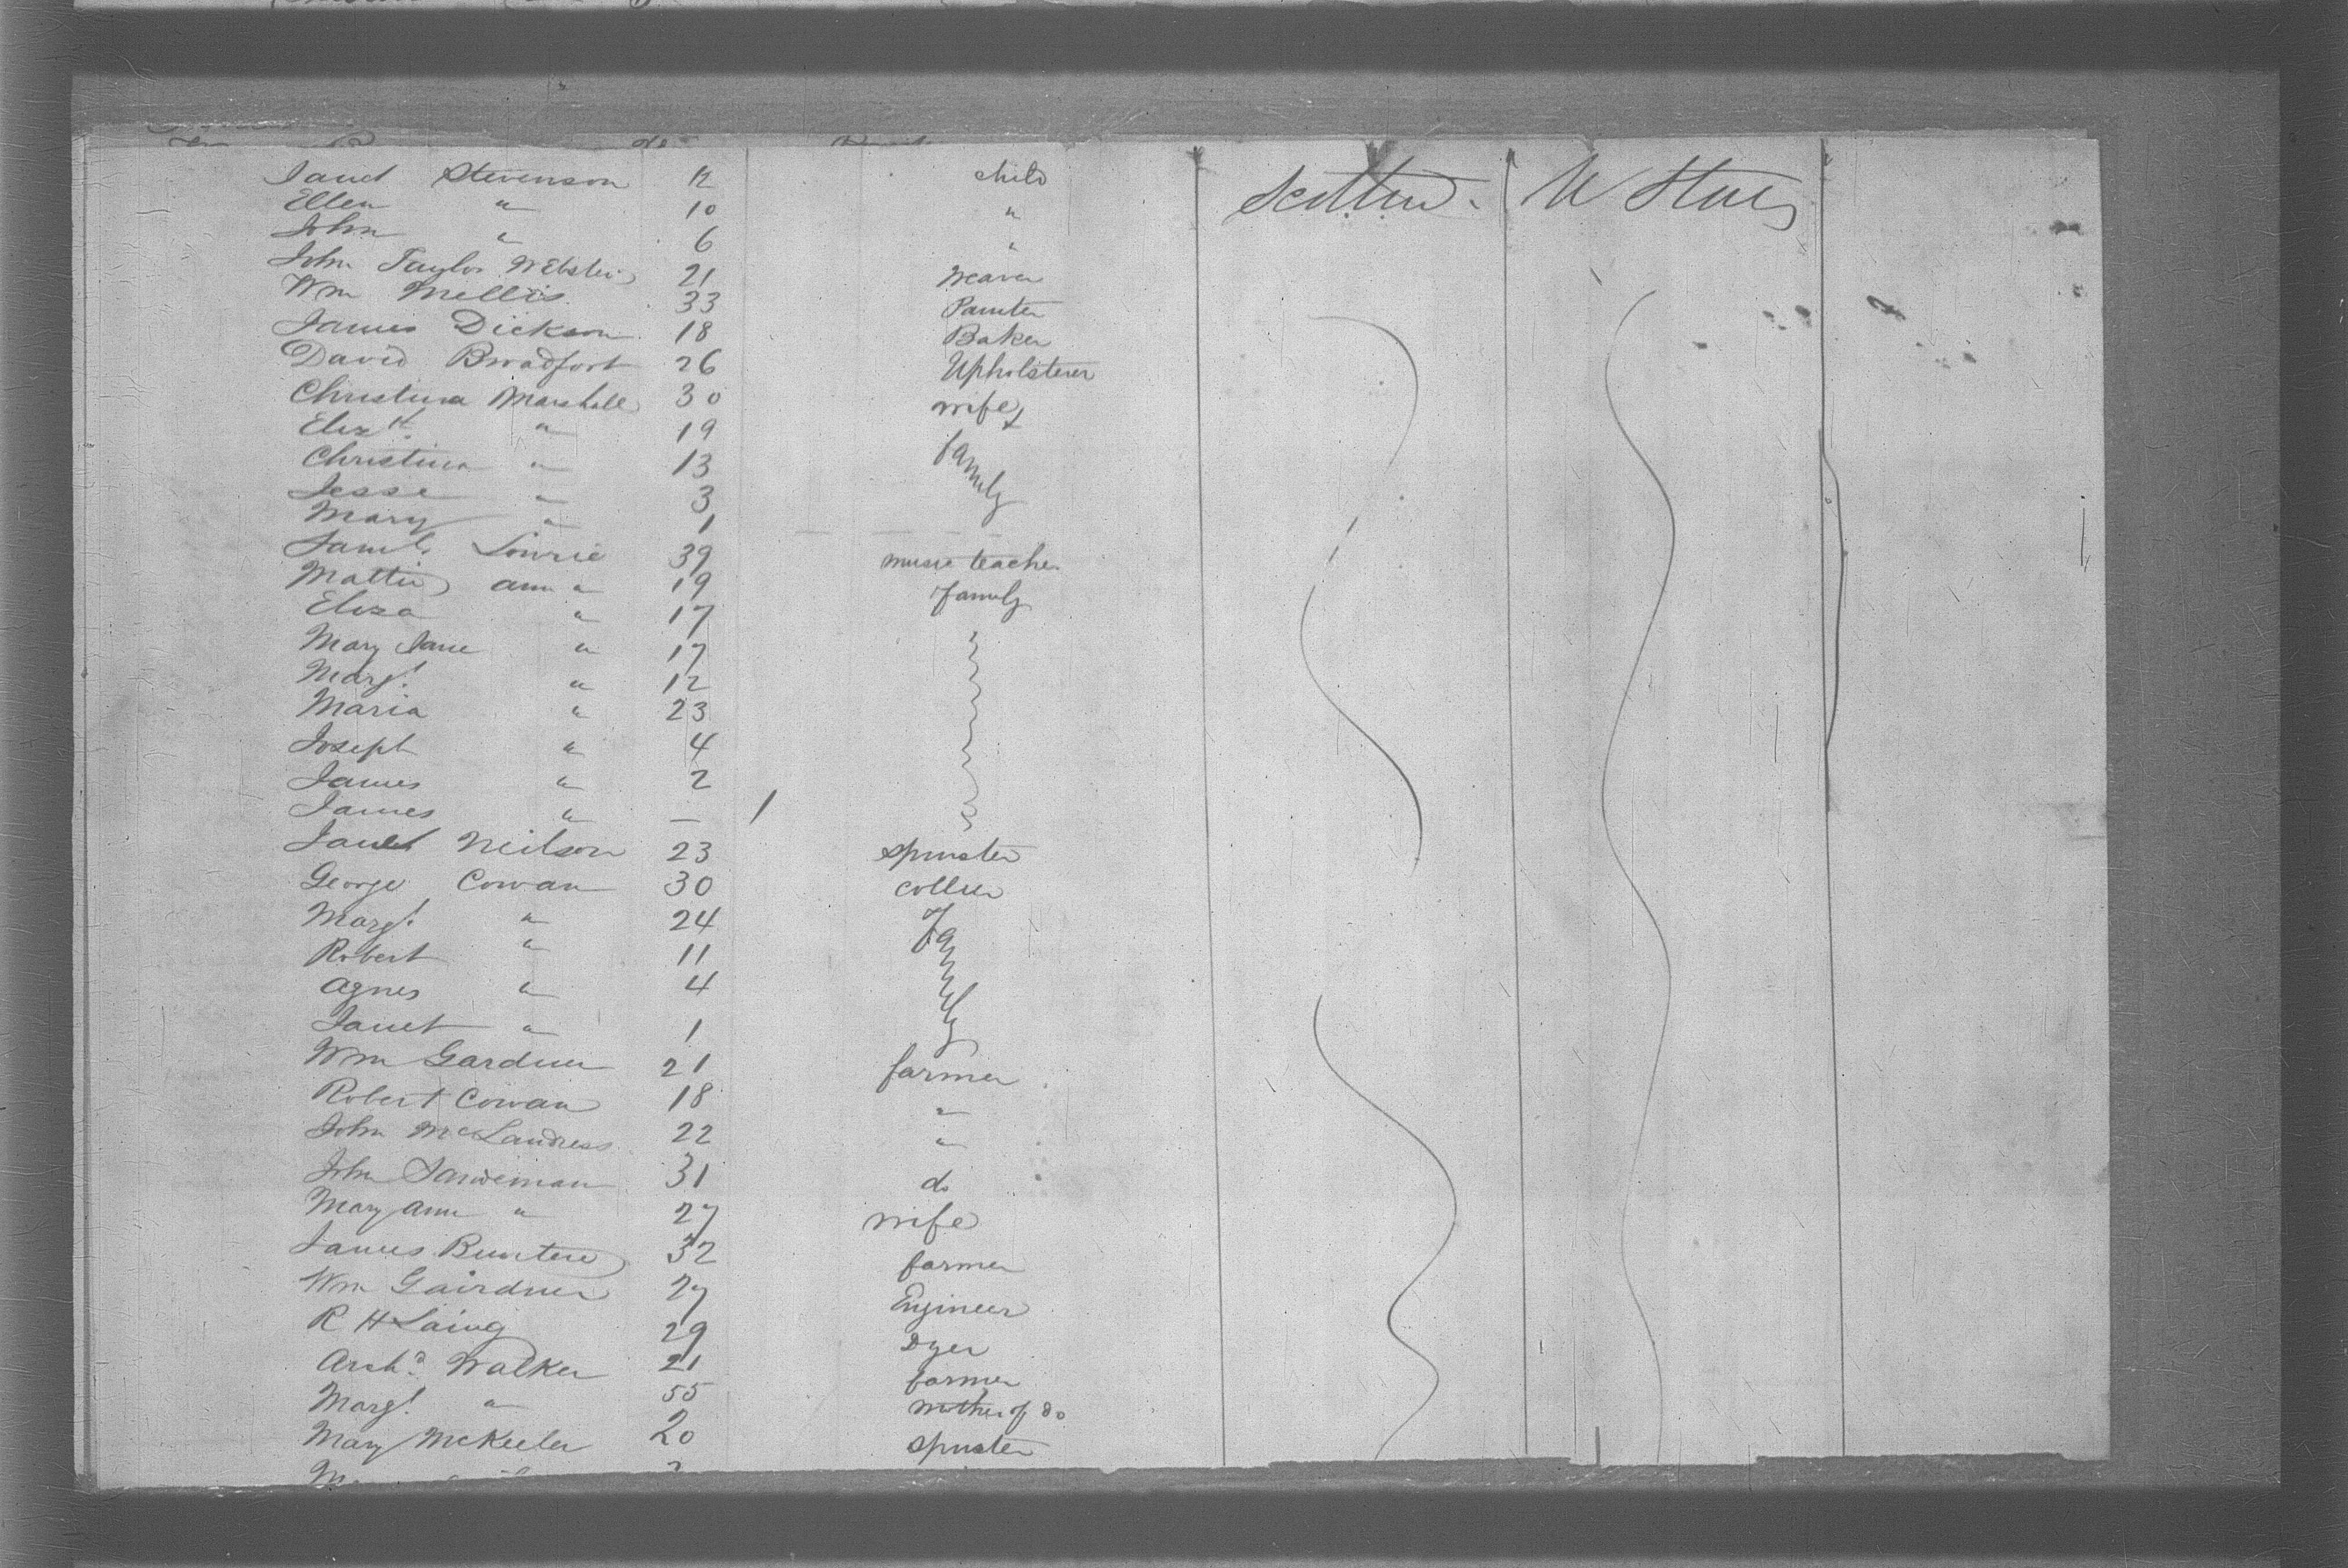 Janet Stevenson 12 child Scotland. U States
Ellen " 10 "
John " 6 "
John Taylor Webster 21 Weaver
Wm Mellis 33 Painter
James Dickson 18 Baker
David Broadfoot 26 Upholsterer
Christina Marshall 30 wife &
Elizth " 19 family
Christina " 13
Jesse " 3
Mary " 1
Saml. Lowrie 39 music teacher
Mattie ann " 19 family
Eliza " 17
Mary Jane " 17
Margt. " 12
Maria " 23
Joseph " 4
James " 2
James " — 1
Janet Neilson 23 spinster
George Cowan 30 collier
Margt. " 24 family
Robert " 11
Agnes " 4
Janet " 1
Wm Gardner 21 farmer
Robert Cowan 18 "
John McLandress 22 "
John 31 do
Mary ann " 27 wife
James 32 farmer
Wm Gairdner 27 Engineer
R H Laing 29 Dyer
Archd. Walker 21 farmer
Margt. " 55 mother of do
Mary McKeeler 20 spinster